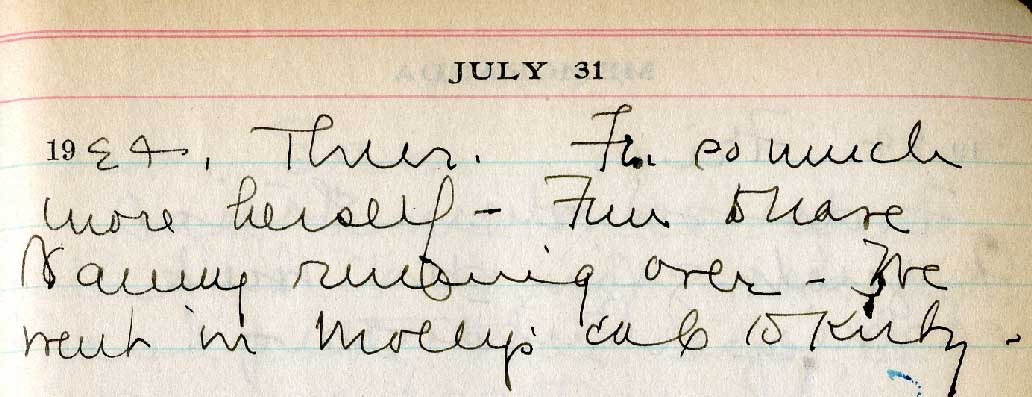 JULY 31
1924, Thur. so much
more herself - Fun to have
running over - We
went in Molly's cab to Kirby.